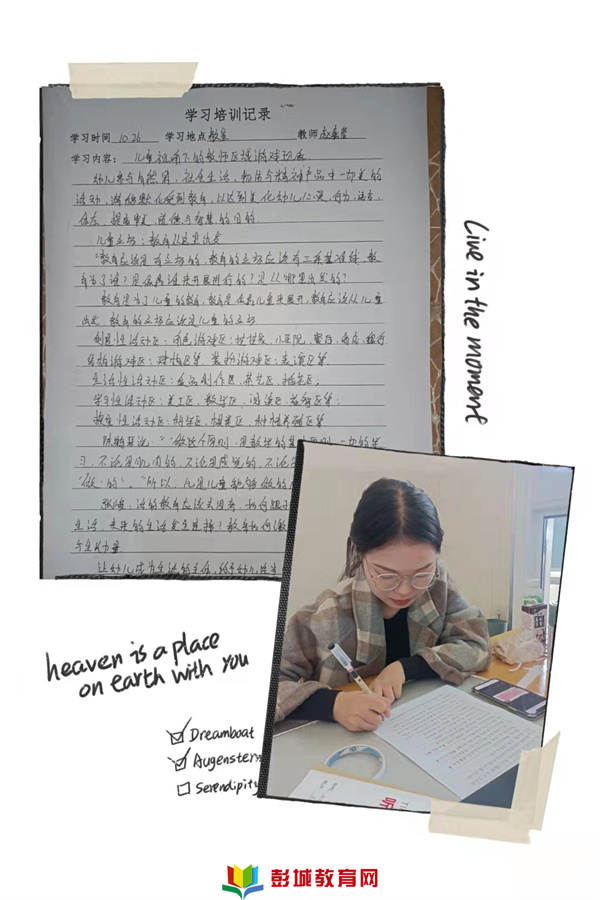 学习培训记录
学习时间 10.26 学习地点 教室 教师
学习内容: 儿童视角下的教师区域游戏观
幼儿参与自然界、社会生活、物质与精神产品中一切美的
活动,潜移默化受到教育,以达到美化幼儿心灵、行为、语言、
体态,提高审美、道德与智慧的目的
儿童立场:教育从这里出发
"教育应该是有立场的,教育的立场应该有三条基准线:教
育为了谁?是依靠谁来开展进行的?是从哪里出发的?
教育是为了儿童的教育,教育是依靠儿童来展开,教育应该从儿童
出发,教育的立场应该是儿童的立场
创造性活动区:角色游戏区:娃娃家、小医院、餐厅、商店、银行
结构游戏区:建构区等 装扮游戏区:表演区等
生活性活动区:食品制作区、茶艺区、插花区;
学习性活动区:美工区、数学区、阅读区、益智区等;
探究性活动区:科学区、种植养殖区等
陈鹤琴说:"做这个原则,是教学的基本原则,一切的学
习,不论是肌肉的,不论是感觉的,不论
"做"的。"所以,凡是儿童能够做的
生活,未来的生活发生连接?教育如何激
与生长力量
让幼儿成为生活的主人,给予幼儿
Live in the moment
heaven is a place
on earth with you
Dreamboat
Augenstern
Serendipity
听
彭城教育网